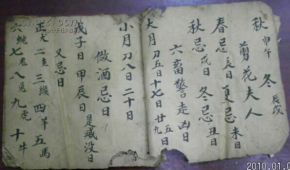 秋 甲午 冬 辰戌
剪花夫人
春忌 丑日 夏忌 未日
秋忌 戌日 冬忌 丑日
六畜警走凶日
大月 刀五日十七日廿九日
小月 刀八日二十日
做酒忌日
戊子日 甲辰日 是滅没日
又忌日
正六二魚三猴四羊五馬
六純七兔八 九 十牛
2010.01.0